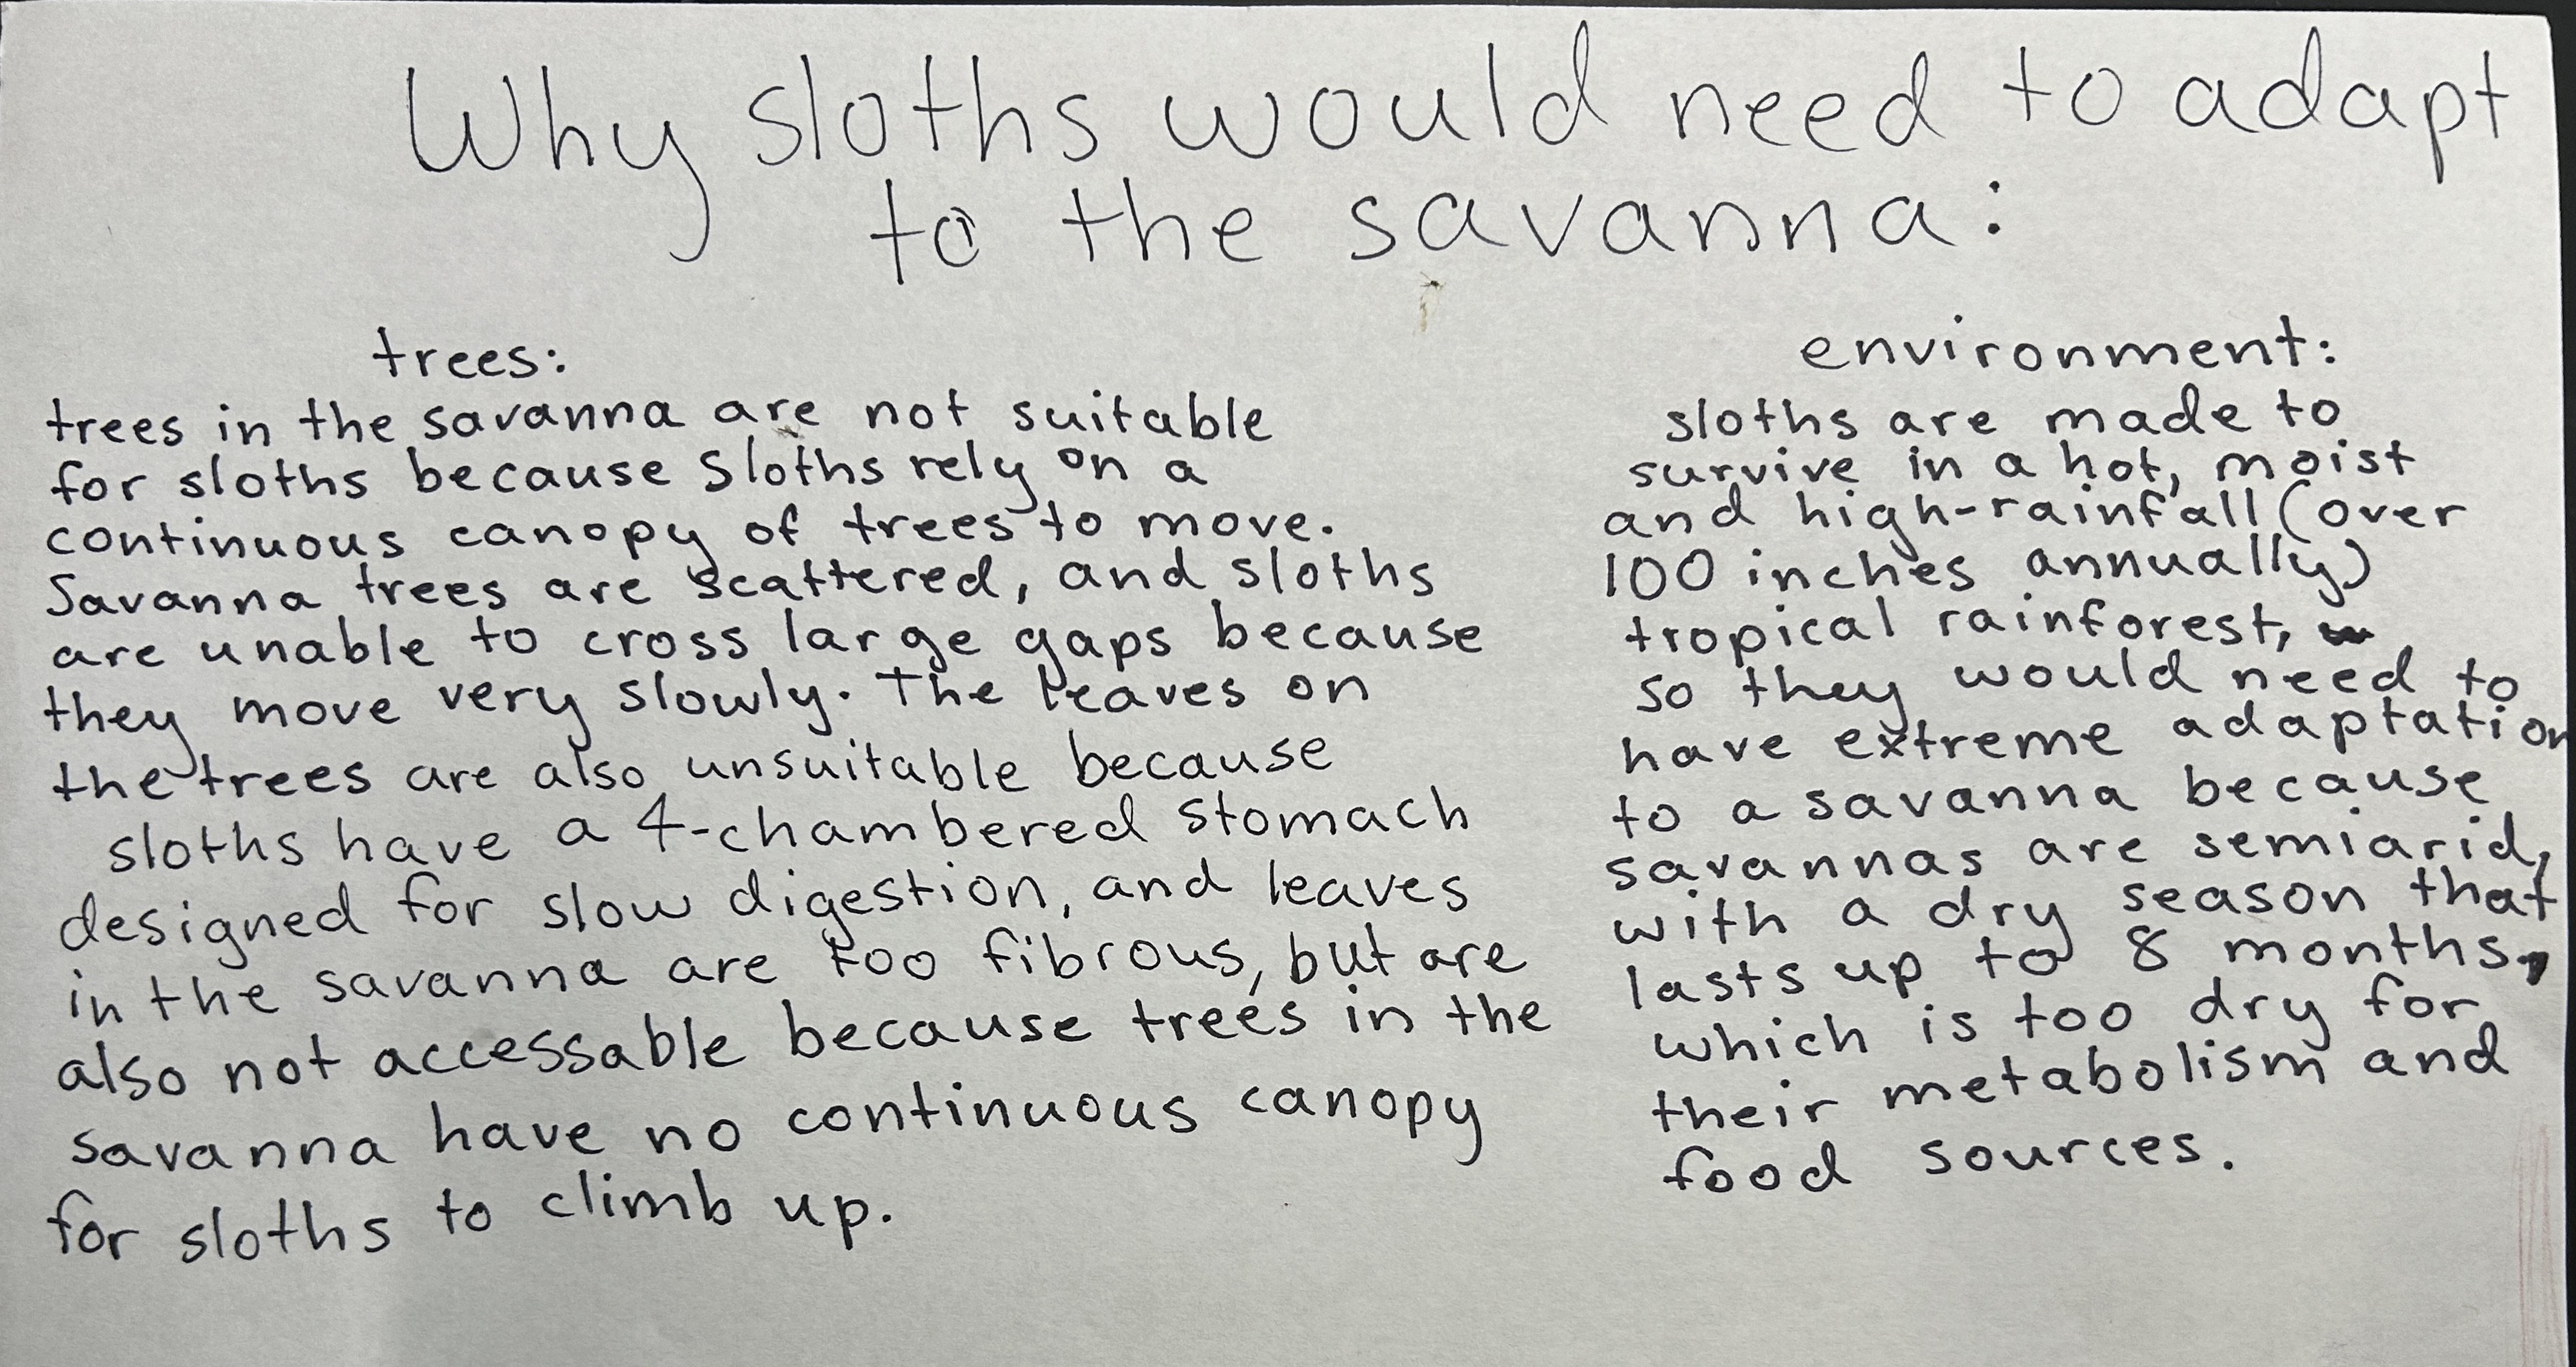 Why sloths would need to adapt
to the savanna:
trees:
trees in the savanna are not suitable
for sloths because sloths rely on a
continuous canopy of trees to move.
Savanna trees are scattered, and sloths
are unable to cross large gaps because
they move very slowly. The leaves on
the trees are also unsuitable because
sloths have a 4-chambered stomach
designed for slow digestion, and leaves
in the savanna are too fibrous, but are
also not accessable because trees in the
savanna have no continuous canopy
for sloths to climb up.
environment:
sloths are made to
survive in a hot, moist
and high-rainfall (over
100 inches annually)
tropical rainforest,
so they would need to
have extreme adaptation
to a savanna because
savannas are semiarid,
with a dry season that
lasts up to 8 months,
which is too dry for
their metabolism and
food sources.